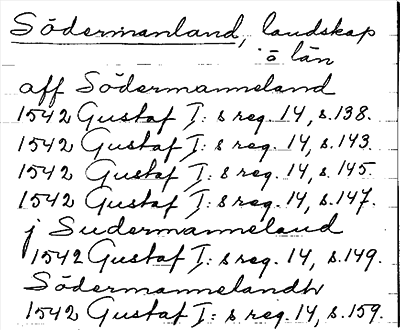 Södermanland, landskap
o län
aff Södermanneland
1542 Gustaf I: s reg. 14, s. 138.
1542 Gustaf I: s reg. 14, s. 143.
1542 Gustaf I: s reg. 14, s. 145.
1542 Gustaf I: s reg. 14, s. 147.
j Sudermanneland
1542 Gustaf I: s reg. 14, s. 149.
Södermannelandh
1542 Gustaf I: s reg. 14, s. 159.